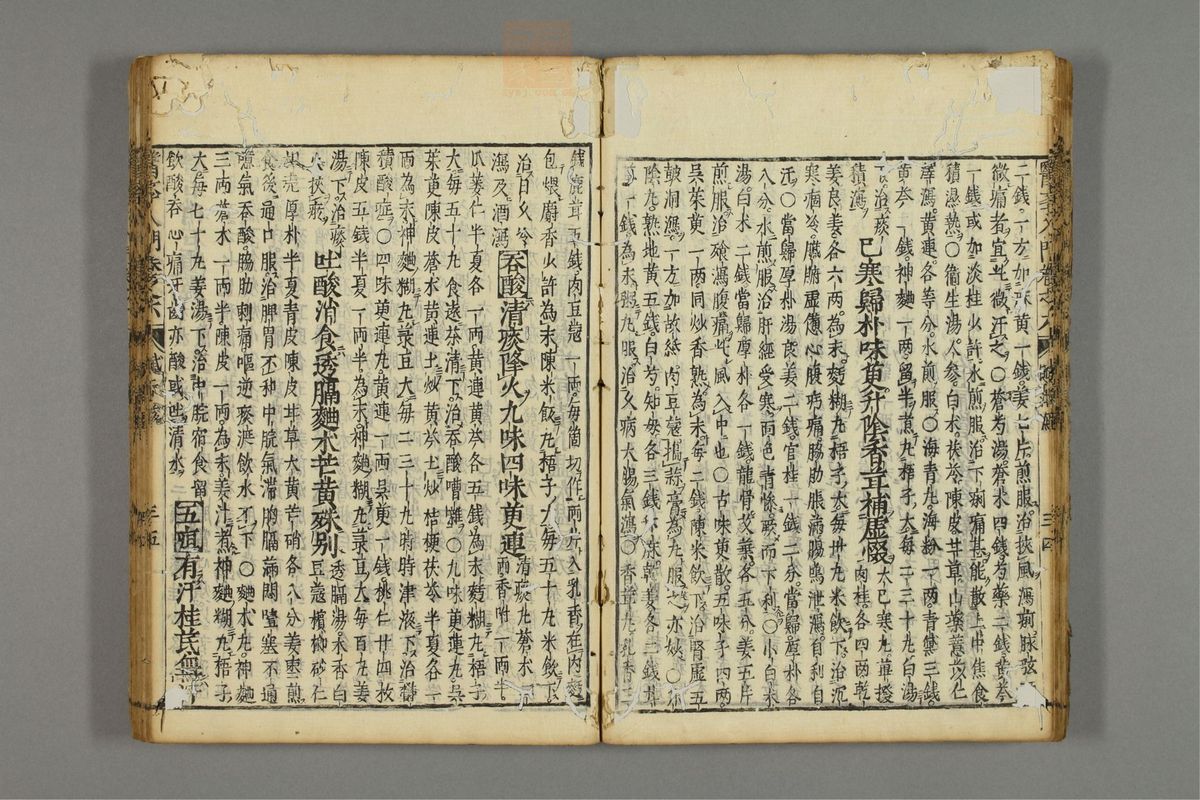 二錢。一方加大黃一錢姜三片煎服。治挾風瀉痢脉弦
微痛者宜此微汗之。○蒼芍湯蒼朮四錢芍藥二錢黃芩
一錢或加淡桂少許水煎服治下痢痛甚能散上中焦食
積濕熱○衛生湯人參白朮茯苓陳皮甘草山藥薏苡仁
澤瀉黃連各等分水煎服。○海青丸海粉一兩青黛三錢
黃芩二錢神麯一兩留半煮丸梧子大每二三十丸白湯
下治痰
積瀉
已寒歸朴味萸升陰香茸補虛憊
大已寒丸蓽撥
肉桂各四兩乾
姜良姜各六兩為末麪糊丸梧子大每卅丸米飲下治沉
寒痼冷臟腑虛憊心腹㽲痛脇肋脹滿腸鳴泄瀉自利自
汗○當歸厚朴湯良姜二錢官桂一錢二分當歸厚朴各
八分水煎服治肝經受寒面色青慘厥而下利○小白朮
湯白朮二錢當歸厚朴各一錢龍骨艾葉各五分姜五片
煎服治飱瀉腹痛此風入中也○古味萸散五味子四兩
吳茱萸一兩同炒香熟為末每二錢陳米飲下治腎虛五
皷洞瀉一方加故紙肉豆蔻搗蒜膏為丸服之亦妙○升
陰丸熟地黃五錢白芍知母各三錢升麻乾姜各二錢甘
草一錢為末煉丸服治久病大腸氣瀉○香茸丸乳香三
錢鹿茸五錢肉豆蔻一兩每箇切作兩片入乳香在內麪
包煨麝香少許為末陳米飯丸梧子大每五十丸米飲下
治日久冷
瀉及酒瀉
吞酸清痰降火九味四味萸連
清痰丸蒼朮
二兩香附一兩半
瓜蔞仁半夏各一兩黃連黃芩各五錢為末麪糊丸梧子
大每五十丸食遠茶清下治吞酸嘈雜○九味萸連丸吳
茱萸陳皮蒼朮黃連土炒黃芩土炒桔梗茯苓半夏各一
兩為末神麯糊丸菉豆大每二三十丸時時津液下治鬱
積酸症○四味萸連丸黃連一兩吳茱萸一錢桃仁廿四枚
陳皮五錢半夏一兩半為末神麯糊丸菉豆大每百丸姜
湯下治痰
火挾瘀
吐酸消食透膈麯朮芒黃殊別
透膈湯木香白
豆蔻檳榔砂仁
枳殼厚朴半夏青皮陳皮甘草大黃芒硝各八分姜棗煎
食後通口服治脾胃不和中脘氣滯胸膈滿悶噎塞不通
噫氣吞酸脇肋刺痛嘔逆痰涎飲水不下○麯朮丸神麯
三兩蒼朮一兩半陳皮一兩為末姜汁煮神麯糊丸梧子
大每七十丸姜湯下治中脘宿食留
飲酸吞心痛牙齒亦酸或吐清水
五疸有汗桂芪無